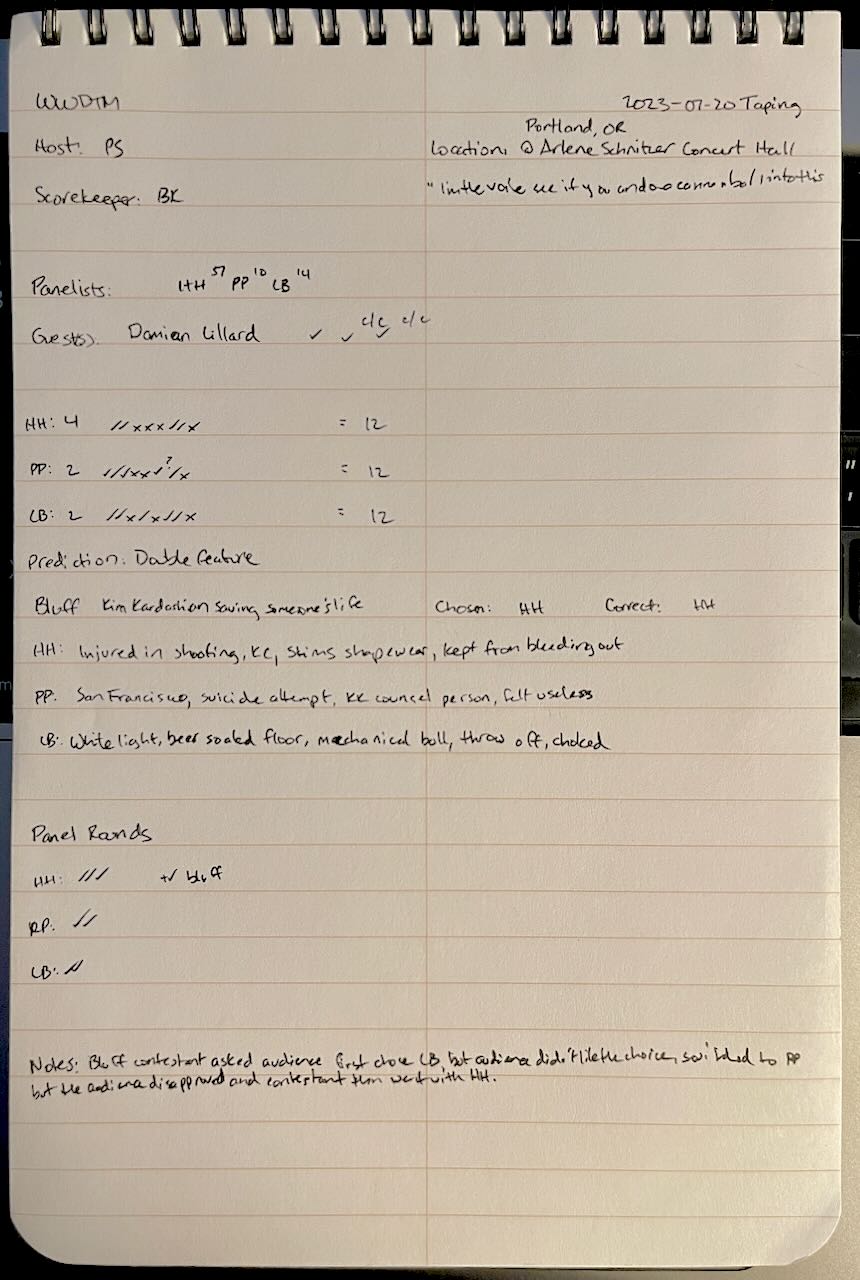 WWDTM
2023-07-20 Taping
Portland, OR
Host: PS
Location: @ Arlene Schnitzer Concert Hall
Scorekeeper: BK
"I'm the voice see if you
Panelists: HH 57 PP 10 LB 14
Guest(s): Damian Lillard ✓ ✓ ✓ c/c c/c
HH: 4 //xxx//x = 12
PP: 2 ///xx/?/x = 12
LB: 2 //x/x//x = 12
Prediction: Double feature
Bluff Kim Kardashian saving someone's life Chosen: HH Correct: HH
HH: Injured in shooting, KC, Skims shapewear, kept from bleeding out
PP: San Francisco, suicide attempt, KK council person, felt useless
LB: White light, beer soaked floor, mechanical bull, throw off, choked
Panel Rounds
HH: /// +✓ bluff
PP: //
LB: //
Notes: Bluff contestant asked audience first chose LB but audience didn't like the choice, switched to PP
but the audience disapproved and contestant then went with HH.